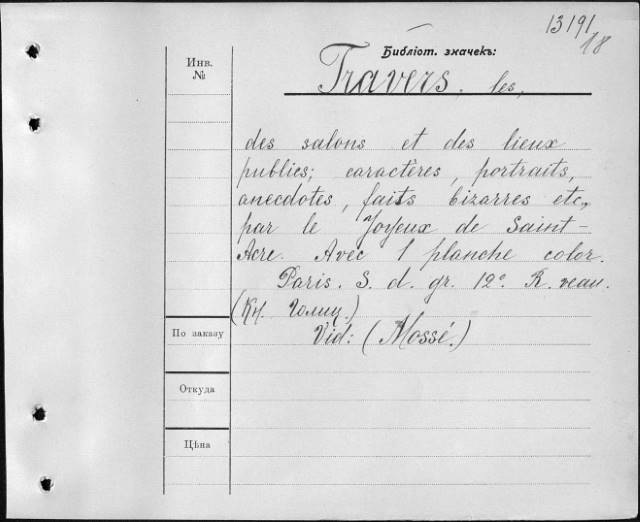 13191
18
Библіот. значекъ:
Инв.
№
Travers, les,
des salons et des lieux
publics; caractères, portraits,
anecdotes, faits bizarres etc.,
par le Joyeux de Saint-
Acre. Avec 1 planche color.
Paris. S. d. gr. 12º. R. veau.
(Кн. Голиц.)
Vid: (Mossé.)
По заказу
Откуда
Цѣна